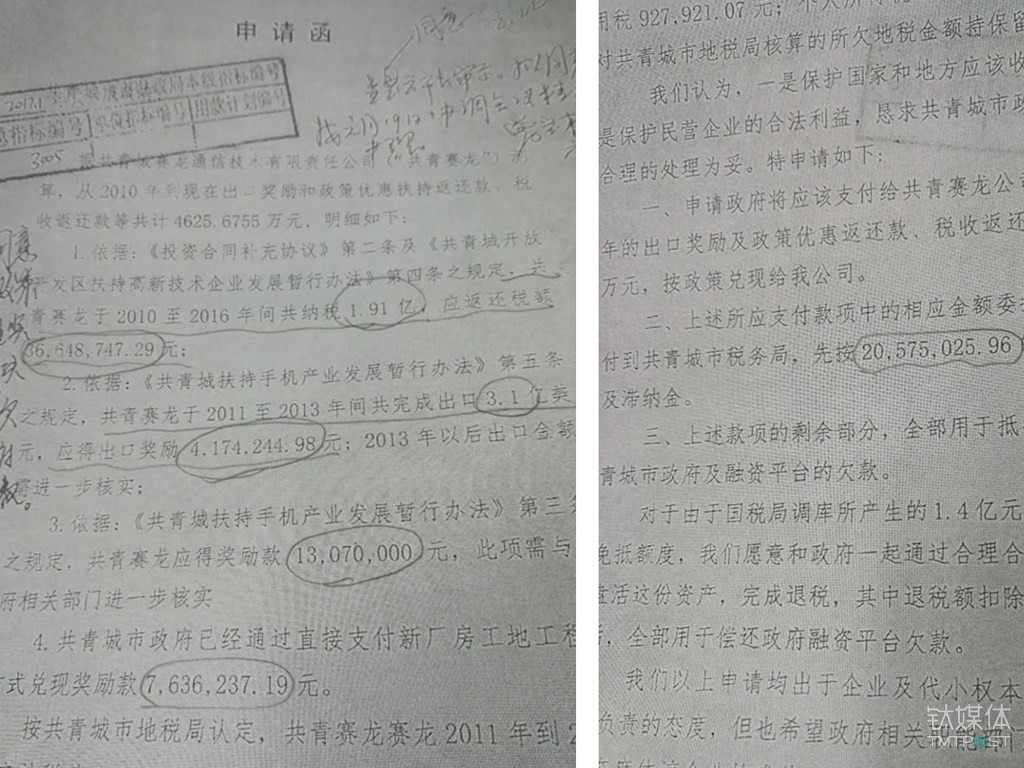 申请函
同意
2017.1 共青城市财政局本级指标编号
总指标编号 单位指标编号 用款计划编号
3005
据共青城赛龙通信技术有限责任公司（“共青赛龙”）
算，从 2010 年到现在出口奖励和政策优惠扶持返还款、税
收返还款等共计 4625.6755 万元，明细如下：
1.依据：《投资合同补充协议》第二条及《共青城开放
开发区扶持高新技术企业发展暂行办法》第四条之规定，共
青赛龙于 2010 至 2016 年间共纳税 1.91 亿，应返还税额
36,648,747.29 元；
2.依据：《共青城扶持手机产业发展暂行办法》第五条
之规定，共青赛龙于 2011 至 2013 年间共完成出口 3.1 亿美
元，应得出口奖励 4,174,244.98 元；2013 年以后出口金额
需进一步核实；
3.依据：《共青城扶持手机产业发展暂行办法》第三条
之规定，共青赛龙应得奖励款 13,070,000 元，此项需与
府相关部门进一步核实
4.共青城市政府已经通过直接支付新厂房工地工程
方式兑现奖励款 7,636,237.19 元。
按共青城市地税局认定，共青赛龙赛龙 2011 年到 2
用税 927,921.07 元；个人所得税
对共青城市地税局核算的所欠地税金额持保留
我们认为，一是保护国家和地方应该收
是保护民营企业的合法利益，恳求共青城市政
合理的处理为妥。特申请如下：
一、申请政府将应该支付给共青赛龙公司
年的出口奖励及政策优惠返还款、税收返还
万元，按政策兑现给我公司。
二、上述所应支付款项中的相应金额委
付到共青城市税务局，先按 20,575,025.96
及滞纳金。
三、上述款项的剩余部分，全部用于抵
青城市政府及融资平台的欠款。
对于由于国税局调库所产生的 1.4 亿元
免抵额度，我们愿意和政府一起通过合理合
盘活这份资产，完成退税，其中退税额扣除
，全部用于偿还政府融资平台欠款。
我们以上申请均出于企业及代小权本
负责的态度，但也希望政府相关职能部门
钛媒体
TMTPOST